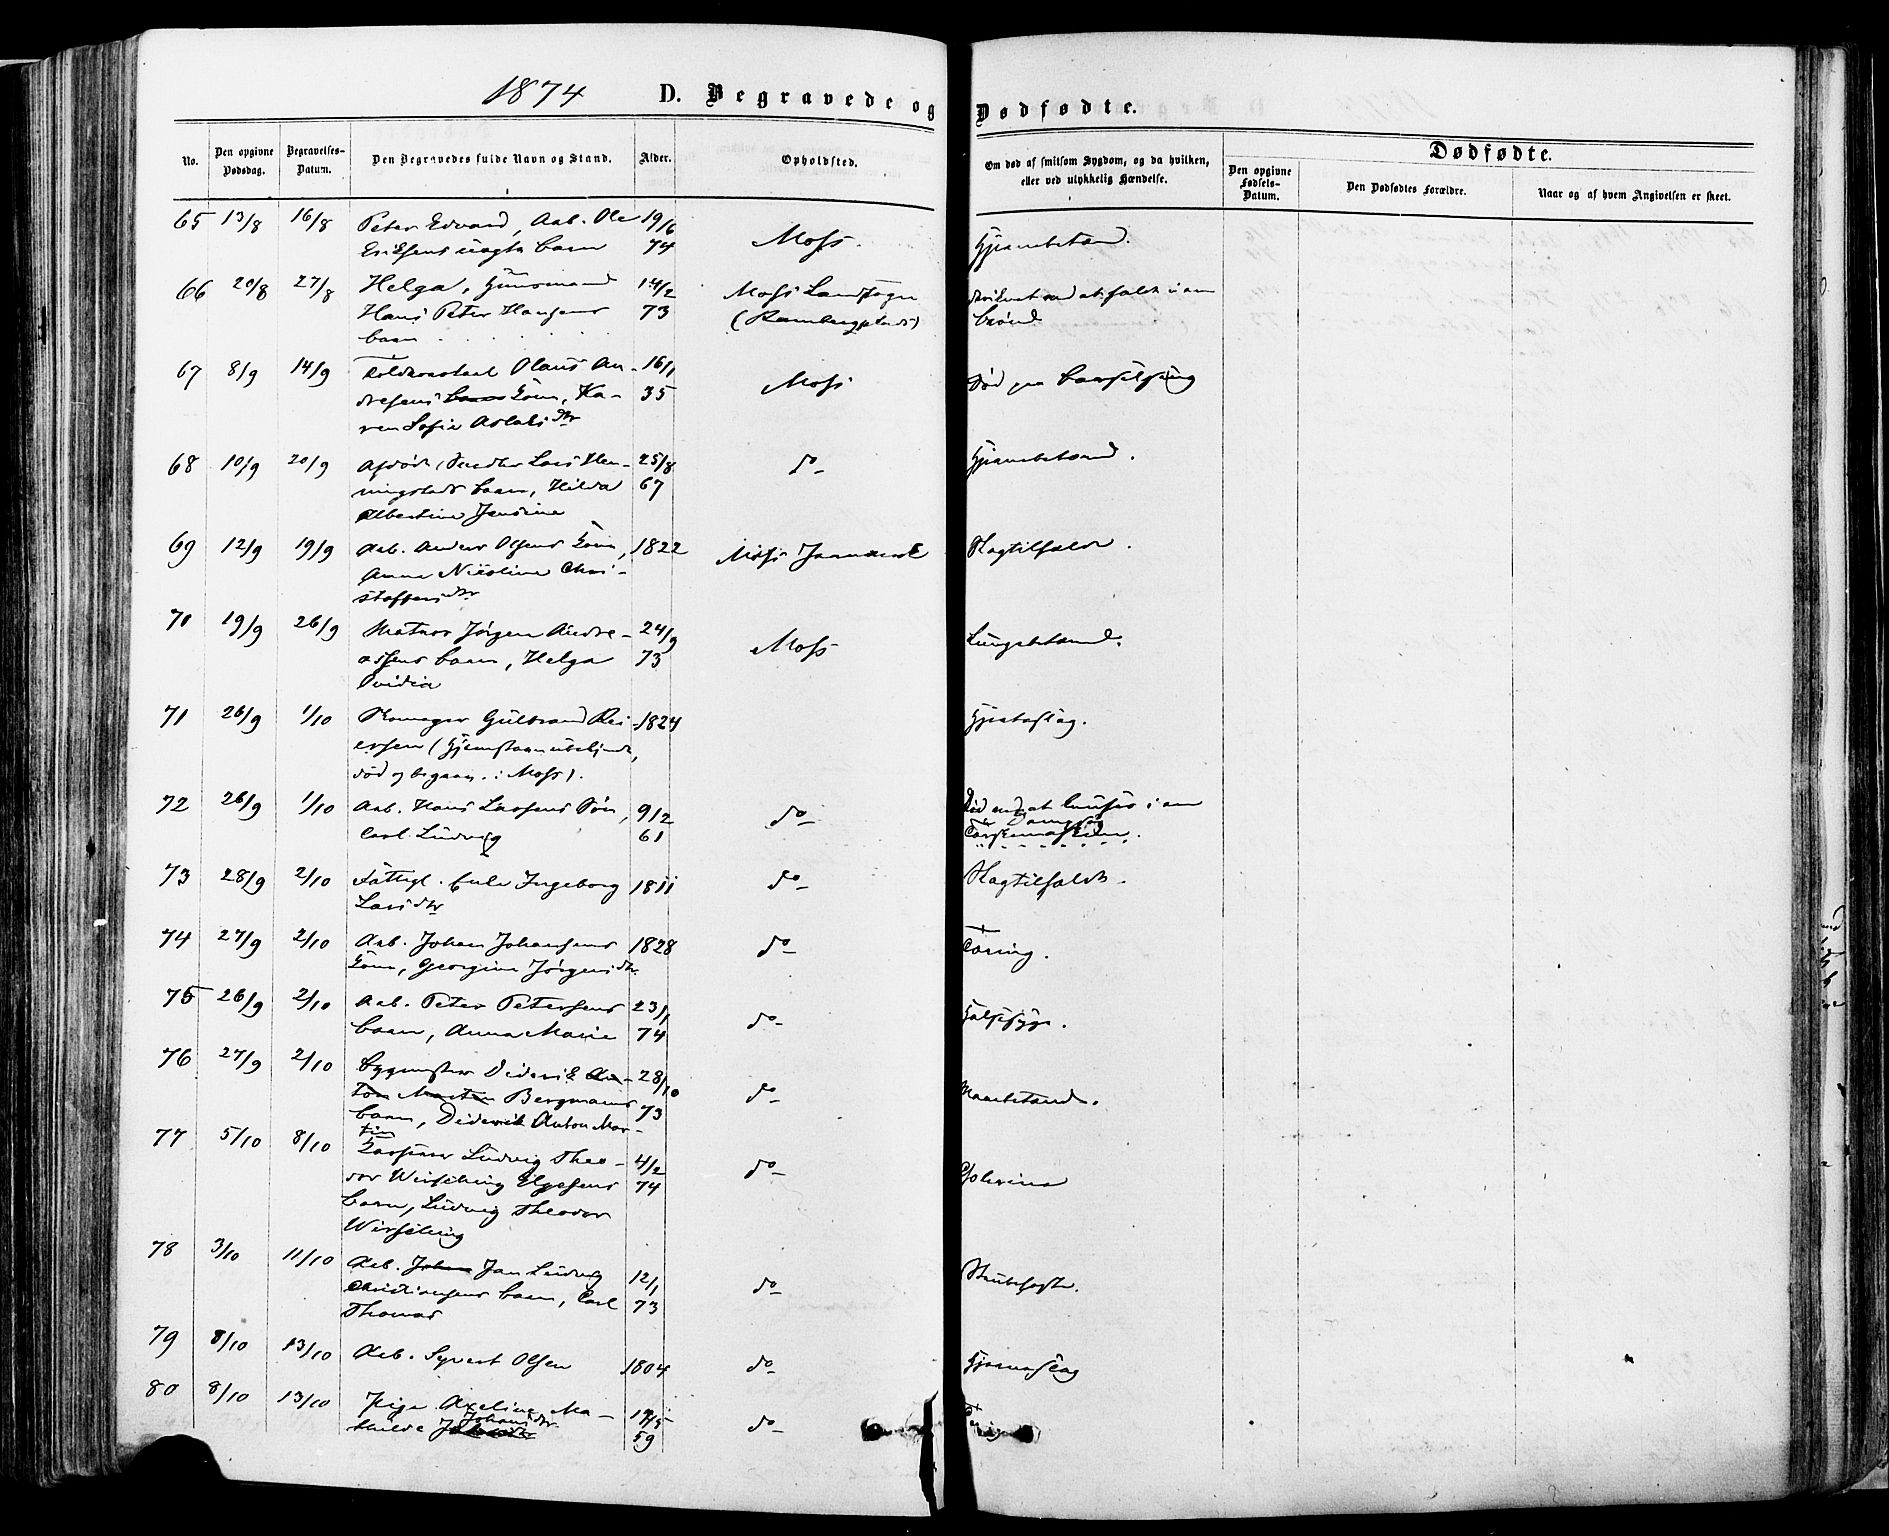 1874 D. Begravede og Dødfødte.
No.
Den opgivne Dødsdag.
Begravelses-Datum.
Den Begravedes fulde Navn og Stand.
Alder.
Opholdsted.
Om død af smitsom Sygdom, og da hvilken, eller ved ulykkelig Hændelse.
Dødfødte.
Den opgivne Fødsels-Datum.
Den Dødfødtes Forældre.
Naar og af hvem Angivelsen er skeet.
65 13/8 16/8 Peter Edvard, Arb. Ole 19/6
Eriksens uægte barn 74 Moss. Hjernebetænd.
66 20/8 27/8 Helga, Huusmand 14/2 Moss Landsogn
Hans Peter Hansens 73 brønd
barn
67 8/9 14/9 Olaus An- 16/1 Moss Død paa barselseng
dresens barn Kone, Ka- 35
ren Sofie Aslaksdtr
68 10/9 20/9 Afdøde Snedker Lars Hen- 25/8 do Hjernebetænd.
ningstads barn, Hilda 67
Albertine Jensine
69 12/9 19/9 Arb. Anders Olsens Kone, 1822 Moss Jernværk Slagtilfælde.
Anne Nicoline Chri-
stoffersdtr
70 19/9 26/9 Matros Jørgen Andre- 24/9 Moss Lungebetænd.
asens barn, Helga 73
71 26/9 1/10 Skomager Gulbrand Rei- 1824 Hjerteslag.
ersen (Hjemstavn ubekjendt,
død og begrav. i Moss).
72 26/9 1/10 Arb. Hans Larsens Søn, 9/2 do
Carl Ludvig 61
73 28/9 2/10 Fattigl. Enke Ingeborg 1811 do Slagtilfælde.
Larsdtr
74 27/9 2/10 Arb. Johan Johansens 1828 do Tæring.
Kone, Georgine Jørgensdtr.
75 26/9 2/10 Arb. Peter Petersens 23/1 do Halssyge.
barn, Anna Marie 74
76 27/9 2/10 Bygmester Diderik An- 28/10 do
ton Martin Bergmanns 73
barn, Diderik Anton Mar-
tin
77 5/10 8/10 Ludvig Theo- 4/2 do Cholerine
dor Wirsching Elgesens 74
barn, Ludvig Theodor
Wirsching
78 3/10 11/10 Arb. Johan Jan Ludvig 12/1 do Strubehoste.
Christiansens barn, Carl 73
Thomas
79 8/10 13/10 Arb. Syvert Olsen 1804 do Hjerneslag
80 8/10 13/10 Pige Axeline Ma- do
thilde Johansdtr 59